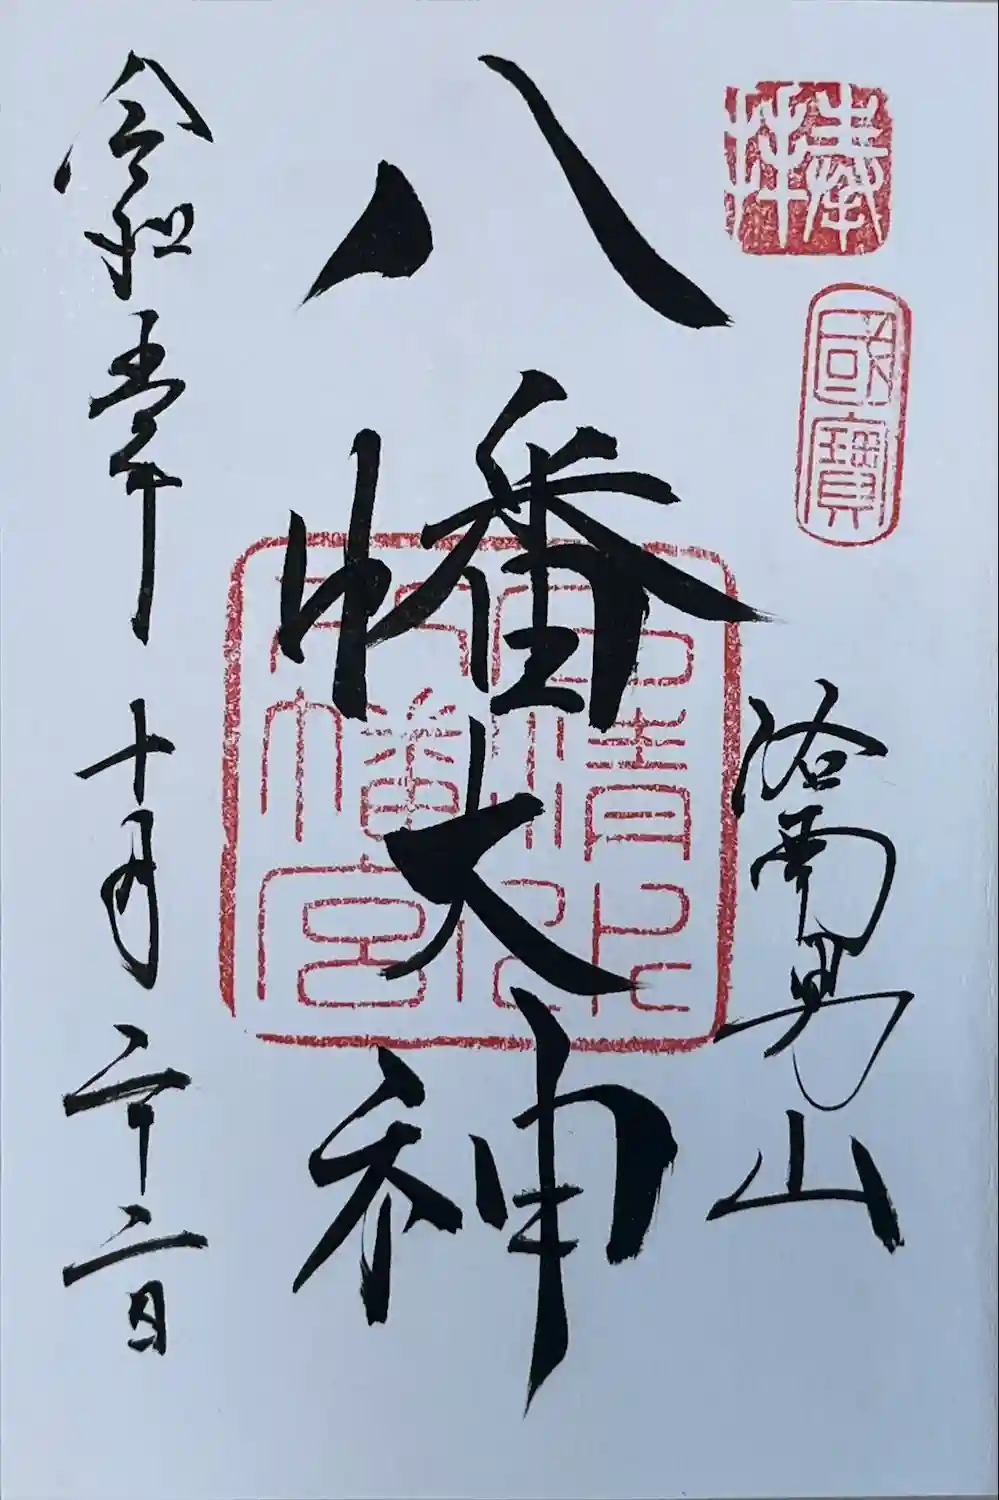 捧拝
國寶
洛南男山
八幡大神
石清水
八幡宮
令和五年十月二十二日